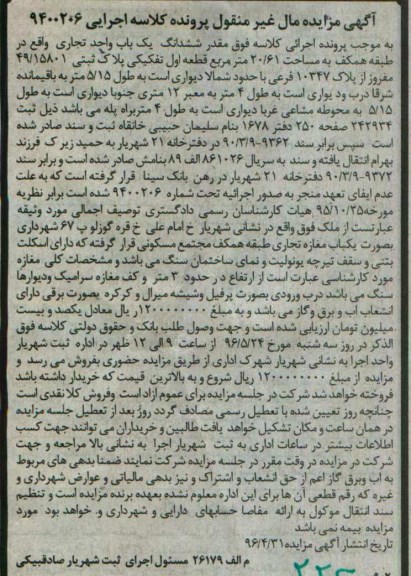 آگهی مزایده مال غیر منقول پرونده کلاسه اجرایی ۹۴۰۰۲۰۶
به موجب پرونده اجرائی کلاسه فوق مقدر ششدانگ یک باب واحد تجاری واقع در
طبقه همکف به مساحت ۲۰/۶۱ متر مربع قطعه اول تفکیکی پلاک ثبتی ۴۹/۱۵۸۰۱
مفروز از پلاک ۱۰۳۴۷ فرعی با حدود شمالا دیواری است به طول ۵/۱۵ متر به باقیمانده
شرقا درب و دیواری است به طول ۴ متر به معبر ۱۲ متری جنوبا دیواری است به طول
۵/۱۵ به محوطه مشاعی غربا دیواری است به طول ۴ متر براه پله می باشد ذیل ثبت
۲۴۲۹۳۴ صفحه ۲۵۰ دفتر ۱۶۷۸ بنام سلیمان حبیبی خانقاه ثبت و سند صادر شده
است سپس برابر سند ۹۳۶۲-۹۰/۳/۹ در دفترخانه ۲۱ شهریار به حمید زیرک فرزند
بهرام انتقال یافته و سند به سریال ۸۶۱۰۲۶ الف ۸۹ بنامش صادر شده است و برابر سند
۹۳۷۲-۹۰/۳/۹ دفترخانه ۲۱ شهریار در رهن بانک سینا قرار گرفته است که به علت
عدم ایفای تعهد منجر به صدور اجرائیه تحت شماره ۹۴۰۰۲۰۶ شده است برابر نظریه
مورخه ۹۵/۱۰/۲۵ هیات کارشناسان رسمی دادگستری توصیف اجمالی مورد وثیقه
عبارتست از ملک فوق واقع در نشانی شهریار خ امام علی خ قره گوزلو پ ۶۷ شهرداری
بصورت یکباب مغازه تجاری طبقه همکف مجتمع مسکونی قرار گرفته که دارای اسکلت
بتنی و سقف تیرچه یونولیت و نمای ساختمان سنگ می باشد و مشخصات کلی مغازه
مورد کارشناسی عبارت است از ارتفاع در حدود ۳ متر و کف مغازه سرامیک و دیوارها
سنگ می باشد درب ورودی بصورت پرفیل وشیشه میرال و کرکره بصورت برقی دارای
انشعاب آب و برق وگاز می باشد و به مبلغ ۱۲۰۰۰۰۰۰۰۰ ریال معادل یکصد و بیست
میلیون تومان ارزیابی شده است و جهت وصول طلب بانک و حقوق دولتی کلاسه فوق
الذکر در روز سه شنبه مورخ ۹۶/۵/۲۴ از ساعت ۹ الی ۱۲ ظهر در اداره ثبت شهریار
واحد اجرا به نشانی شهریار شهرک اداری از طریق مزایده حضوری بفروش می رسد و
مزایده از مبلغ ۱۲۰۰۰۰۰۰۰۰ ریال شروع و به بالاترین قیمت که خریدار داشته باشد
فروخته خواهد شد شرکت در جلسه مزایده برای عموم آزاد است وفروش کلا نقدی است
چنانچه روز تعیین شده با تعطیل رسمی مصادف گردد روز بعد از تعطیل جلسه مزایده
در همان ساعت و مکان تشکیل خواهد یافت طالبین و خریداران می توانند جهت کسب
اطلاعات بیشتر در ساعات اداری به ثبت شهریار اجرا به نشانی بالا مراجعه و جهت
شرکت در مزایده در وقت مقرر در جلسه مزایده شرکت نمایند ضمنا بدهی های مربوط
به آب وبرق گاز اعم از حق انشعاب و اشتراک و نیز بدهی مالیاتی و عوارض شهرداری و
غیره که رقم قطعی آن ها برای این اداره معلوم نشده بعهده برنده مزایده است و تنظیم
سند انتقال موکول به ارائه مفاصا حسابهای دارایی و شهرداری و. خواهد بود مورد
مزایده بیمه نمی باشد
تاریخ انتشار آگهی مزایده ۹۶/۴/۳۱
م الف ۲۶۱۷۹ مسئول اجرای ثبت شهریار صادقبیکی